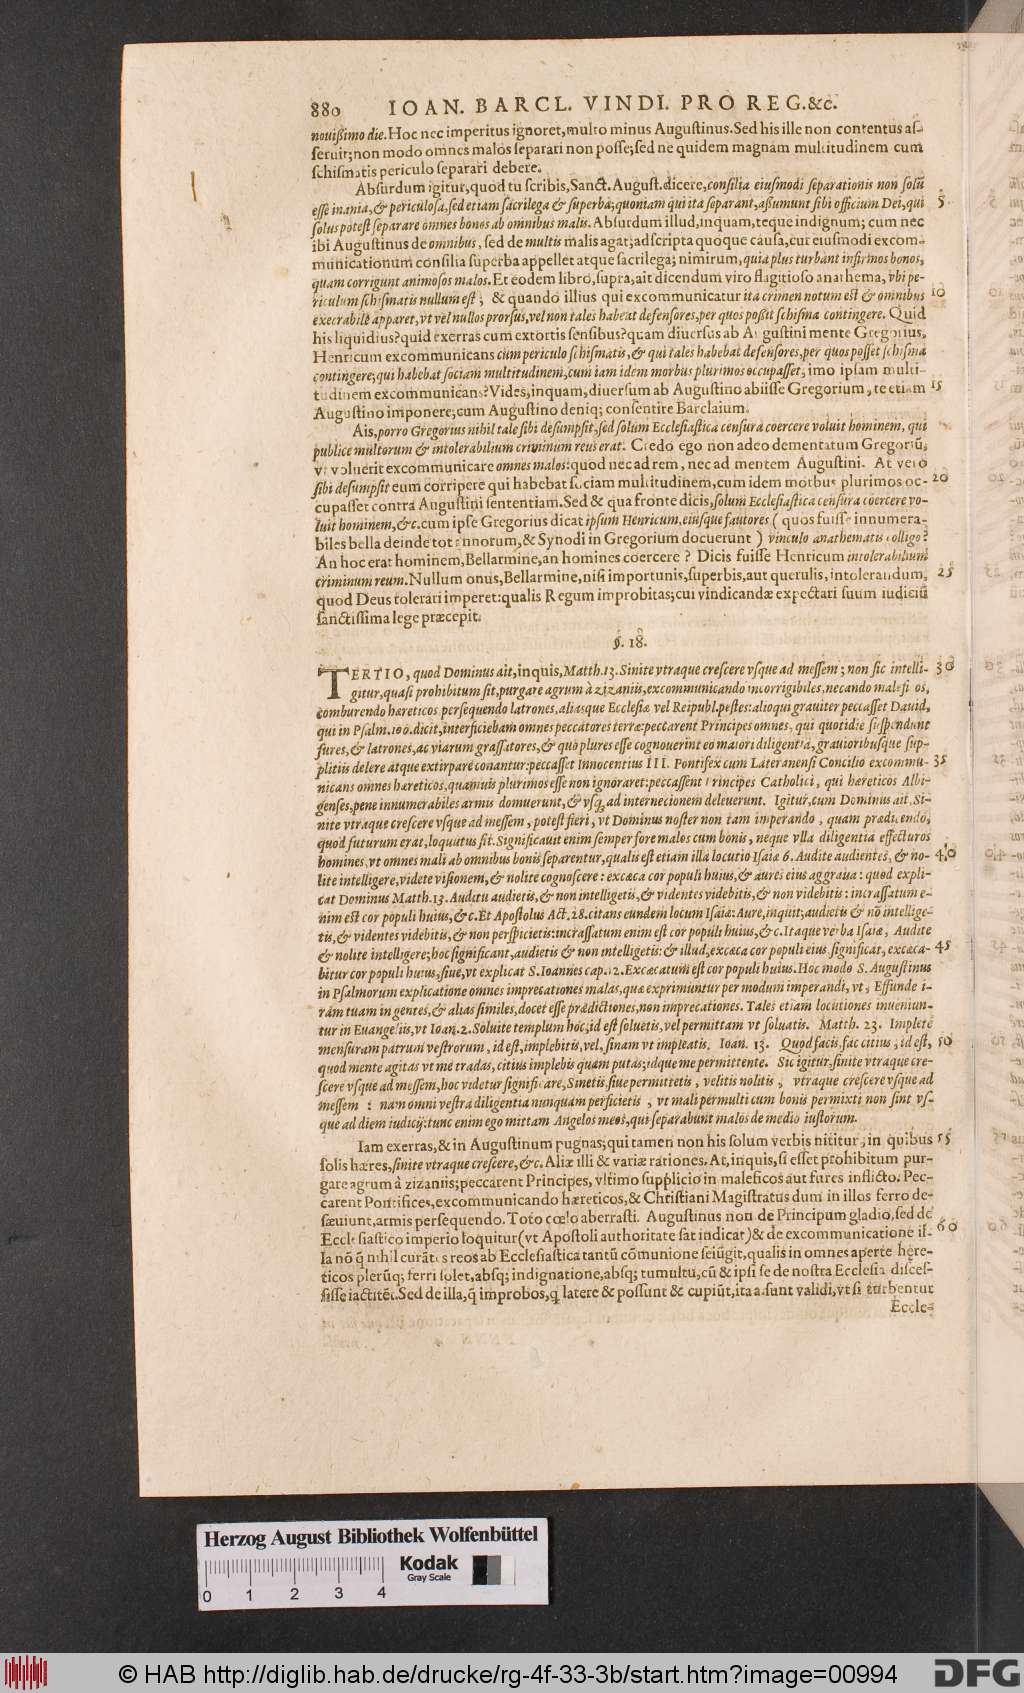 880 IOAN. BARCL. VINDI. PRO REG.&c.
nouißimo die. Hoc nec imperitus ignoret, multo minus Augustinus. Sed his ille non contentus as-
seruit; non modo omnes malos separari non posse; sed ne quidem magnam multitudinem cum
schismatis periculo separari debere.
Absurdum igitur, quod tu scribis, Sanct. August. dicere, consilia eiusmodi separationis non solũ
esse inania, & periculosa, sed etiam sacrilega & superba; quoniam qui ita separant, aßumunt sibi officium Dei, qui 5
solus potest separare omnes bonos ab omnibus malis. Absurdum illud, inquam, teque indignum; cum nec
ibi Augustinus de omnibus, sed de multis malis agat; adscripta quoque causa, cur eiusmodi excom-
municationum consilia superba appellet atque sacrilega; nimirum, quia plus turbant infirmos bonos,
quam corrigunt animosos malos. Et eodem libro, supra, ait dicendum viro flagitioso anathema, vbi pe-
riculum schismatis nullum est; & quando illius qui excommunicatur ita crimen notum est & omnibus 10
execrabile apparet, vt vel nullos prorsus, vel non tales habeat defensores, per quos poßit schisma contingere. Quid
his liquidius? quid exerras cum extortis sensibus? quam diuersus ab Augustini mente Gregorius,
Henricum excommunicans cum periculo schismatis, & qui tales habebat defensores, per quos posset schisma
contingere; qui habebat sociam multitudinem, cum iam idem morbus plurimos occupasset, imo ipsam multi-
tudinem excommunicans? Vides, inquam, diuersum ab Augustino abiisse Gregorium, te etiam 15
Augustino imponere; cum Augustino deniq; consentire Barclaium.
Ais, porro Gregorius nihil tale sibi desumpsit, sed solum Ecclesiastica censura coercere voluit hominem, qui
publice multorum & intolerabilium criminum reus erat. Credo ego non adeo dementatum Gregoriũ,
vt voluerit excommunicare omnes malos: quod nec ad rem, nec ad mentem Augustini. At vero
sibi desumpsit eum corripere qui habebat sociam multitudinem, cum idem morbus plurimos oc- 20
cupasset contra Augustini sententiam. Sed & qua fronte dicis, solum Ecclesiastica censura coercere vo-
luit hominem, &c. cum ipse Gregorius dicat ipsum Henricum, eiusque fautores ( quos fuisse innumera-
biles bella deinde tot annorum, & Synodi in Gregorium docuerunt ) vinculo anathematis colligo?
An hoc erat hominem, Bellarmine, an homines coercere? Dicis fuisse Henricum intolerabilium
criminum reum. Nullum onus, Bellarmine, nisi importunis, superbis, aut querulis, intolerandum, 25
quod Deus tolerari imperet: qualis Regum improbitas; cui vindicandæ expectari suum iudiciũ
sanctissima lege præcepit.
§. 18.
TERTIO, quod Dominus ait, inquis, Matth. 13. Sinite vtraque crescere vsque ad messem; non sic intelli- 30
gitur, quasi prohibitum sit, purgare agrum à zizaniis, excommunicando incorrigibiles, necando malefi os,
comburendo hæreticos persequendo latrones, aliasque Ecclesiæ vel Reipubl. pestes: alioqui grauiter peccasset Dauid,
qui in Psalm. 100. dicit, interficiebam omnes peccatores terræ: peccarent Principes omnes, qui quotidie suspendunt
fures, & latrones, ac viarum grassatores, & quo plures esse cognouerint eo maiori diligentia, grauioribusque sup-
plitiis delere atque extirpare conantur: peccasset Innocentius III. Pontifex cum Lateranensi Concilio excommu- 35
nicans omnes hæreticos, quamuis plurimos esse non ignoraret: peccassent Principes Catholici, qui hæreticos Albi-
genses, pene innumerabiles armis domuerunt, & vsq; ad internecionem deleuerunt. Igitur, cum Dominus ait, Si-
nite vtraque crescere vsque ad messem, potest fieri, vt Dominus noster non tam imperando, quam prædicendo,
quod futurum erat, loquutus sit. Significauit enim semper fore malos cum bonis, neque vlla diligentia effecturos
homines, vt omnes mali ab omnibus bonis separentur, qualis est etiam illa locutio Isaiæ 6. Audite audientes, & no- 40
lite intelligere, videte visionem, & nolite cognoscere: excæca cor populi huius, & aures eius aggraua: quod expli-
cat Dominus Matth. 13. Auditu audietis, & non intelligetis, & videntes videbitis, & non videbitis: incrassatum e-
nim est cor populi huius, &c. Et Apostolus Act. 28. citans eundem locum Isaiæ: Aure, inquit, audietis & nõ intellige-
tis, & videntes videbitis, & non perspicietis: incrassatum enim est cor populi huius, &c. Itaque verba Isaiæ, Audite
& nolite intelligere; hoc significant, audietis & non intelligetis: & illud, excæca cor populi eius significat, excæca- 45
bitur cor populi huius, siue, vt explicat S. Ioannes cap. 12. Excæcatum est cor populi huius. Hoc modo S. Augustinus
in Psalmorum explicatione omnes imprecationes malas, quæ exprimuntur per modum imperandi, vt, Effunde i-
ram tuam in gentes, & alias similes, docet esse prædictiones, non imprecationes. Tales etiam locutiones inueniun-
tur in Euangeliis, vt Ioan. 2. Soluite templum hoc, id est soluetis, vel permittam vt soluatis. Matth. 23. Implete
mensuram patrum vestrorum, id est, implebitis, vel, sinam vt impleatis. Ioan. 13. Quod facis, fac citius, id est, 50
quod mente agitas vt me tradas, citius implebis quam putas; idque me permittente. Sic igitur, sinite vtraque cre-
scere vsque ad messem, hoc videtur significare, Sinetis siue permittetis, velitis nolitis, vtraque crescere vsque ad
messem: nam omni vestra diligentia nunquam perficietis, vt mali permulti cum bonis permixti non sint vs-
que ad diem iudicij: tunc enim ego mittam Angelos meos, qui separabunt malos de medio iustorum.
Iam exerras, & in Augustinum pugnas; qui tamen non his solum verbis nititur, in quibus 55
solis hæres, sinite vtraque crescere, &c. Aliæ illi & variæ rationes. At, inquis, si esset prohibitum pur-
gare agrum à zizaniis; peccarent Principes, vltimo supplicio in maleficos aut fures inflicto. Pec-
carent Pontifices, excommunicando hæreticos, & Christiani Magistratus dum in illos ferro de-
sæuiunt, armis persequendo. Toto cœlo aberrasti. Augustinus non de Principum gladio, sed de
Ecclesiastico imperio loquitur (vt Apostoli authoritate sat indicat) & de excommunicatione il- 60
la nõ q̃ nihil curãtes reos ab Ecclesiastica tantũ cõmunione seiũgit, qualis in omnes aperte hære-
ticos plerũq; ferri solet, absq; indignatione, absq; tumultu, cũ & ipsi se de nostra Ecclesia disces-
sisse iactitẽt. Sed de illa, q̃ improbos, q latere & possunt & cupiũt, ita adsunt validi, vt si turbentur
Eccle-
Herzog August Bibliothek Wolfenbüttel
Kodak
Gray Scale
0 1 2 3 4
© HAB http://diglib.hab.de/drucke/rg-4f-33-3b/start.htm?image=00994
DFG